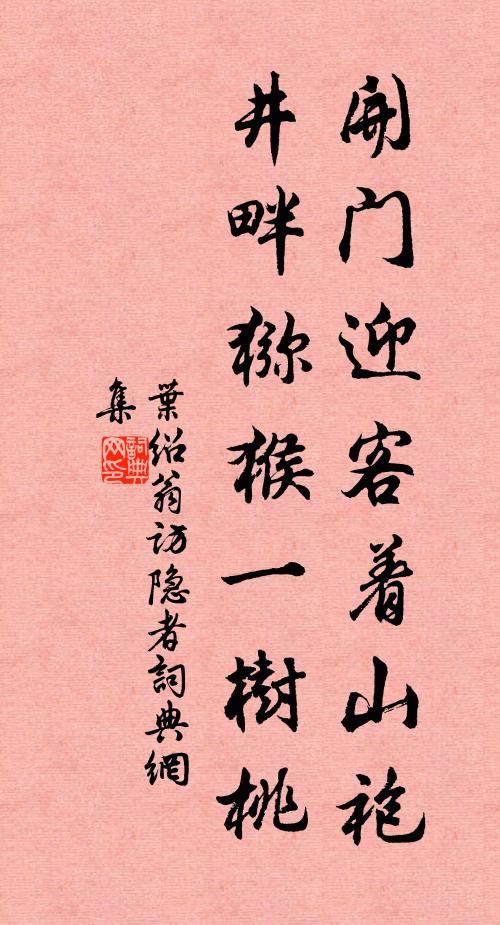 開门迎客着山袍
井畔猕猴一樹桃
葉紹翁訪隐者詞典網
集
詞典网印